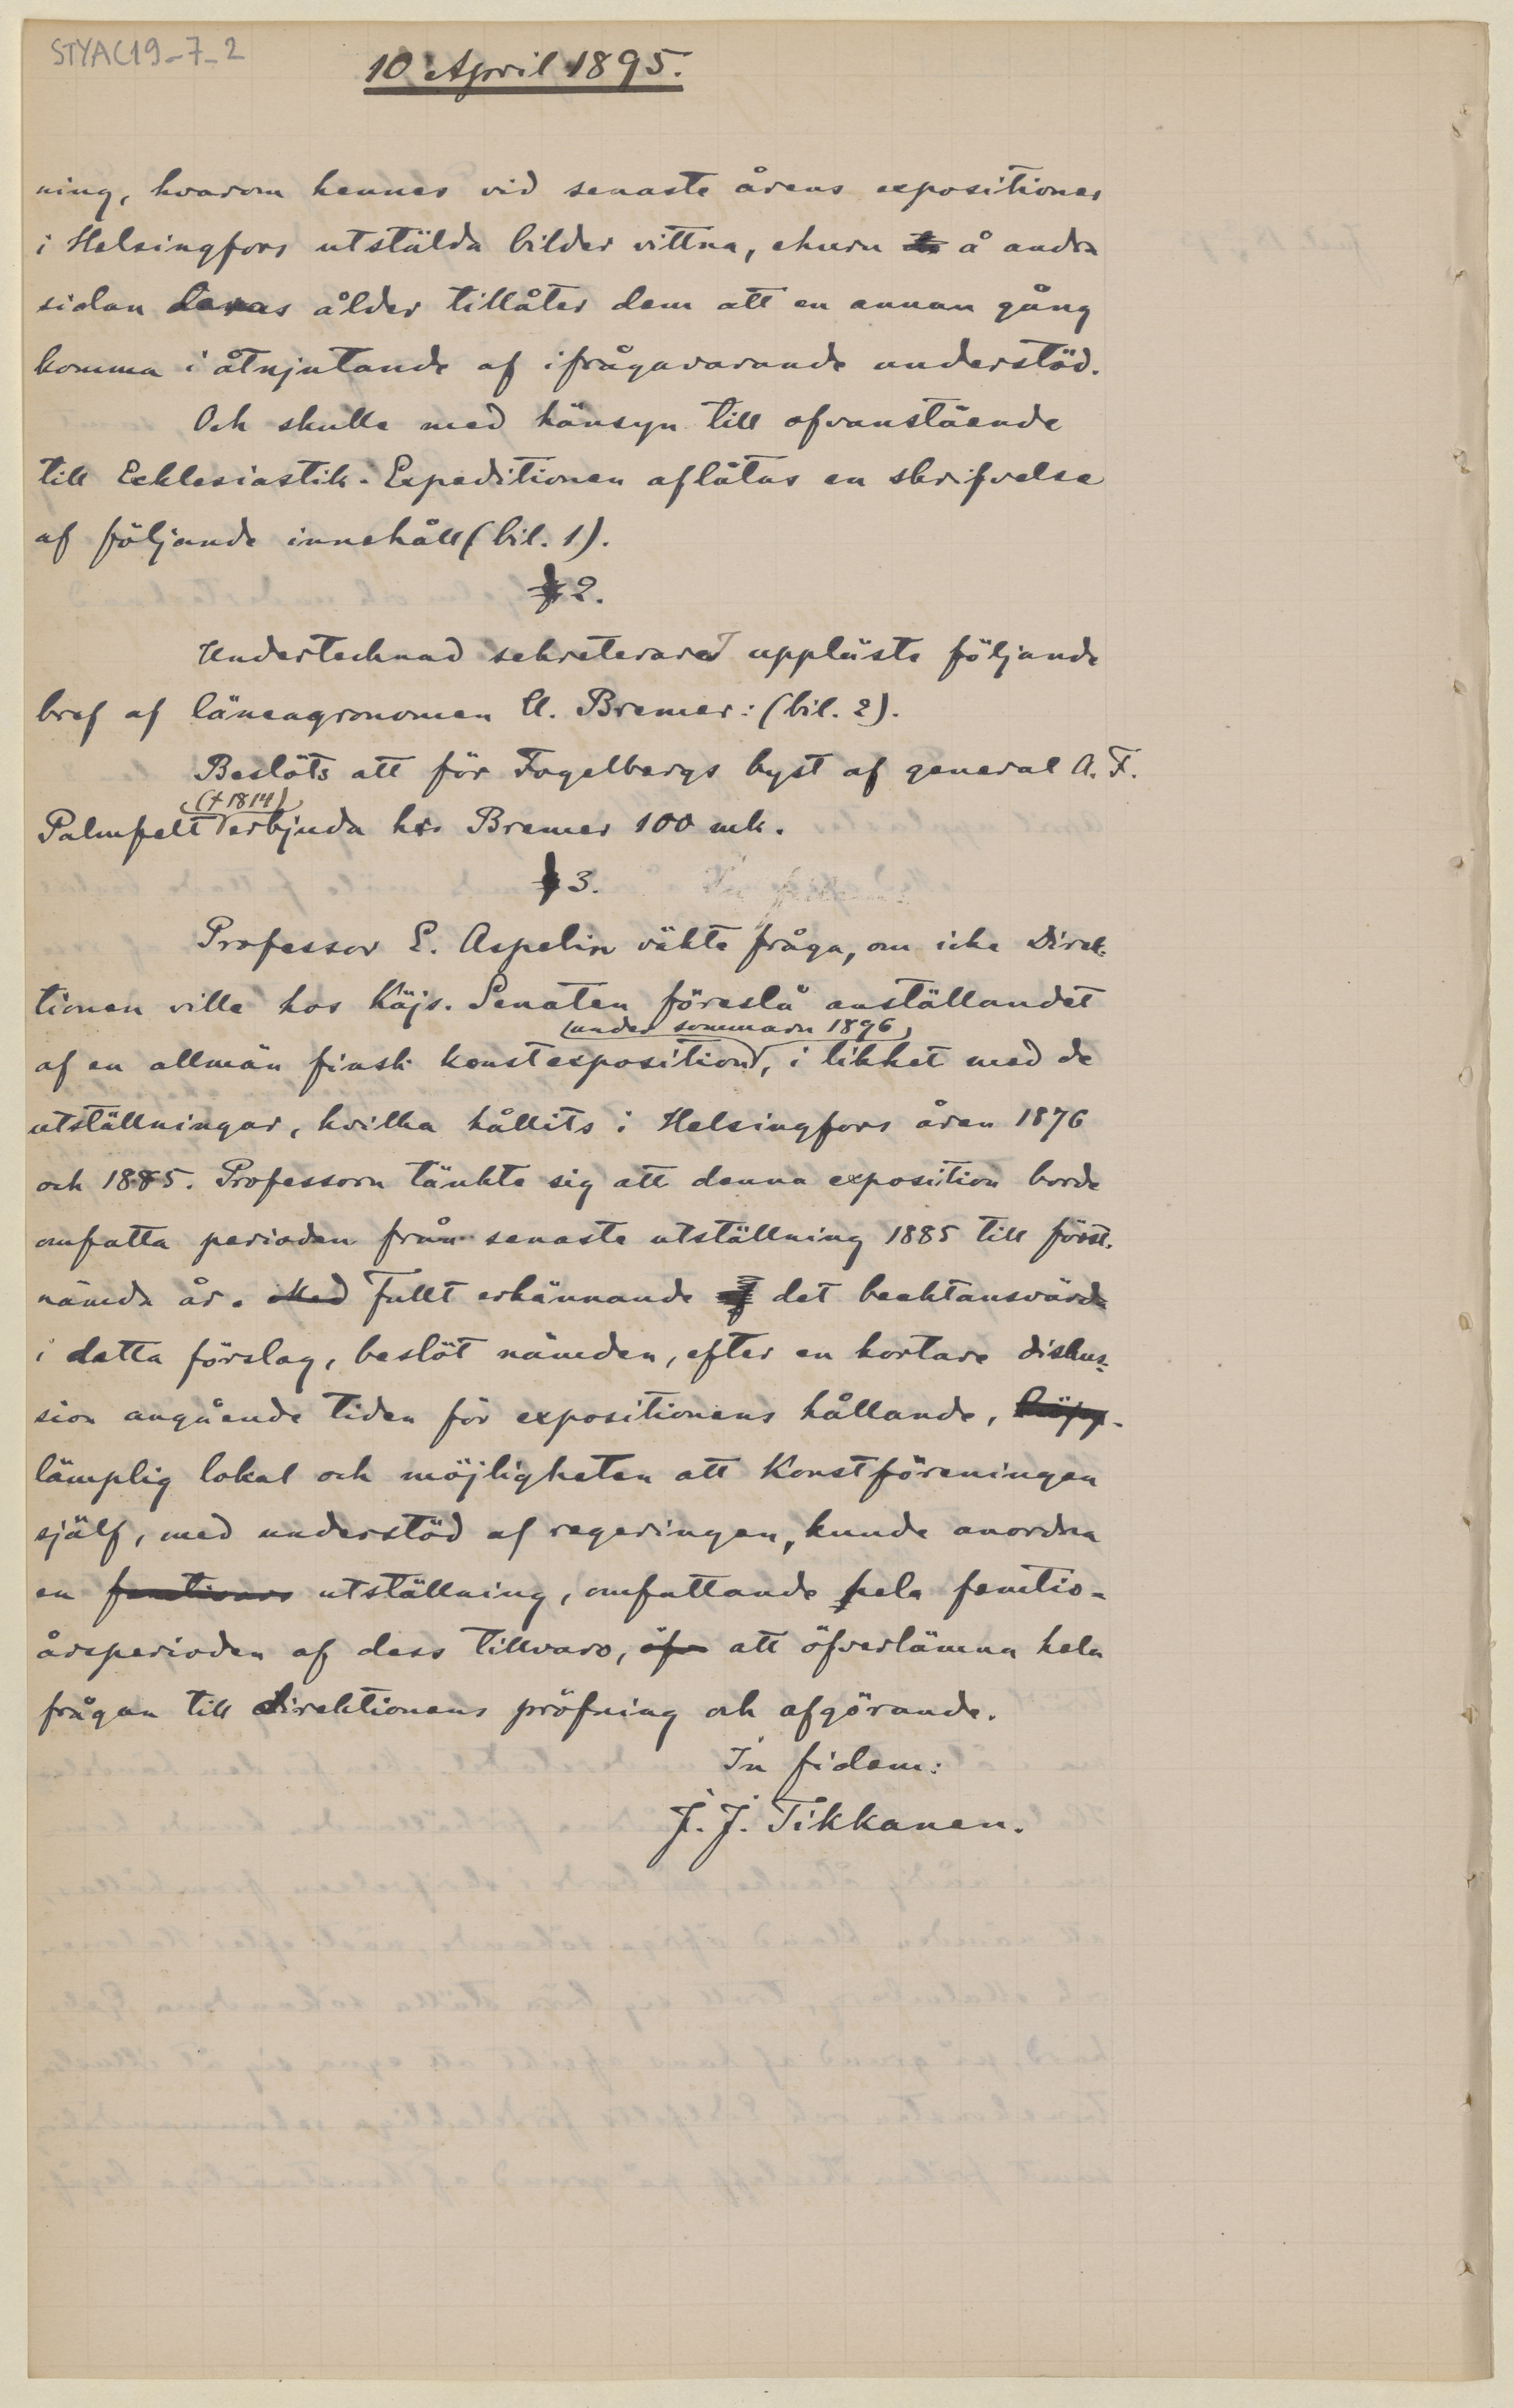 STYAC19-7-2
10 April 1895.
ning, hvarom hennes vid senaste årens expositioner
i Helsingfors utstälda bilder vittna, ehuru å andra
sidan deras ålder tillåter dem att en annan gång
komma i åtnjutande af ifrågavarande understöd.
Och skulle med hänsyn till ofvanstående
till Ecklesiastik-Expeditionen aflåtas en skrifvelse
af följande innehåll (bil. 1).
§ 2.
Undertecknad sekreterare uppläste följande
bref af länsagronomen U. Bremer: (bil. 2).
Beslöts att för Fogelbergs byst af general A. F.
(† 1814)
Palmfelt erbjuda hr Bremer 100 mk.
§ 3.
Professor E. Aspelin väkte fråga, om icke Direk-
tionen ville hos Kajs. Senaten föreslå anställandet
under sommarn 1896
af en allmän finsk konstexposition, i likhet med de
utställningar, hvilka hållits i Helsingfors åren 1876
och 1885. Professorn tänkte sig att denna exposition borde
omfatta perioden från senaste utställning 1885 till först-
nämda år. Med Fullt erkännande af det beaktansvärda
i detta förslag, beslöt nämden, efter en kortare diskus-
sion angående tiden för expositionens hållande,
lämplig lokal och möjligheten att Konstföreningen
själf, med understöd af regeringen, kunde anordna
en utställning, omfattande hela femtio-
årsperioden af dess tillvaro, öfv att öfverlämna hela
frågan till direktionens pröfning och afgörande.
In fidem:
J. J. Tikkanen.